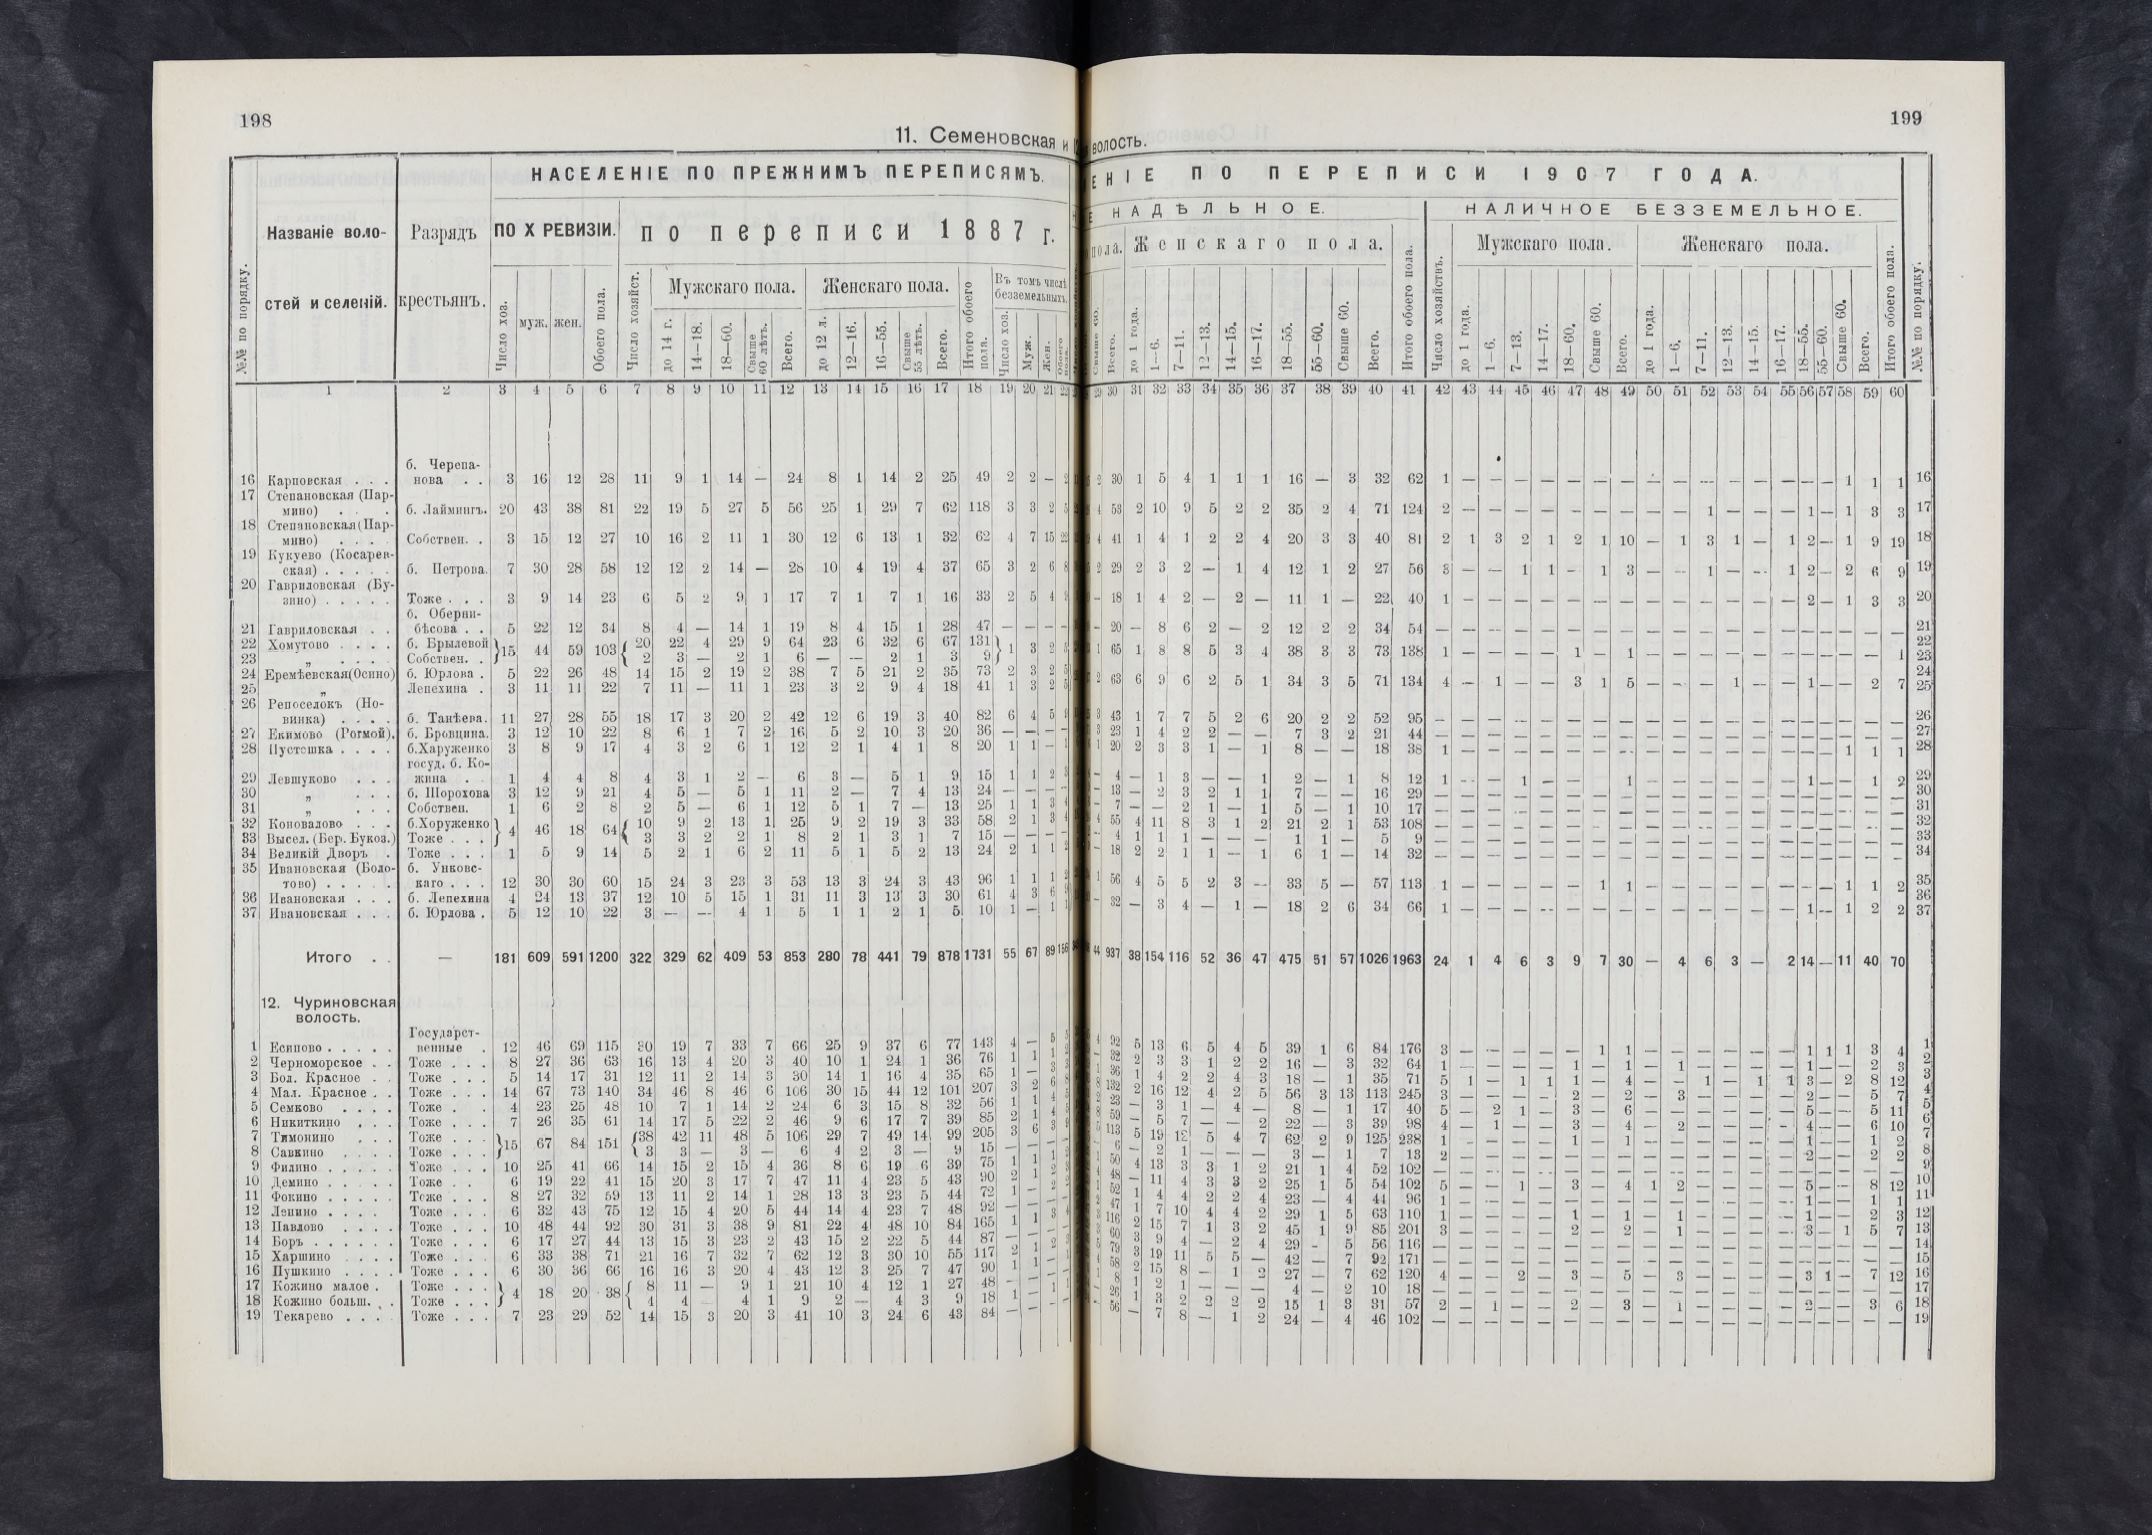 198
199
11. Семеновская и
волость.
НАСЕЛЕНІЕ ПО ПРЕЖНИМЪ ПЕРЕПИСЯМЪ.
ЕНІЕ ПО ПЕРЕПИСИ 1907 ГОДА.
№№ по порядку.
Названіе воло-
стей и селеній.
Разрядъ
крестьянъ.
ПО X РЕВИЗІИ.
по переписи 1887 г.
НАДѢЛЬНОЕ.
НАЛИЧНОЕ БЕЗЗЕМЕЛЬНОЕ.
Число хоз.
муж.
жен.
Обоего пола.
Число хозяйст.
Мужскаго пола.
Женскаго пола.
Итого обоего пола.
Въ томъ числѣ безземельныхъ.
до 14 г. 14—18. 18—60. Свыше 60 лѣтъ. Всего.
до 12 л. 12—16. 16—55. Свыше 55 лѣтъ. Всего.
Число хоз. Муж. Жен. Обоего пола.
пола. Женскаго пола.
Свыше 60. Всего. до 1 года. 1—6. 7—11. 12—13. 14—15. 16—17. 18—55. 55—60. Свыше 60. Всего. Итого обоего пола.
Число хозяйствъ.
Мужскаго пола.
до 1 года. 1—6. 7—13. 14—17. 18—60. Свыше 60. Всего.
Женскаго пола.
до 1 года. 1—6. 7—11. 12—13. 14—15. 16—17. 18—55. 55—60. Свыше 60. Всего. Итого обоего пола. №№ по порядку.
1 2 3 4 5 6 7 8 9 10 11 12 13 14 15 16 17 18 19 20 21 22
29 30 31 32 33 34 35 36 37 38 39 40 41 42 43 44 45 46 47 48 49 50 51 52 53 54 55 56 57 58 59 60
б. Черепа-
16 Карповская . . . нова . . 3 16 12 28 11 9 1 14 — 24 8 1 14 2 25 49 2 2 —
2 30 1 5 4 1 1 1 16 — 3 32 62 1 — — — — — — — — — — — — — — — 1 1 1 16
17 Степановская (Пар-
мино) . . . б. Лаймингъ. 20 43 38 81 22 19 5 27 5 56 25 1 29 7 62 118 3 3 2 5
4 53 2 10 9 5 2 2 35 2 4 71 124 2 — — — — — — — — — 1 — — — 1 — 1 3 3 17
18 Степановская (Пар-
мино) . . . . Собствен. . 3 15 12 27 10 16 2 11 1 30 12 6 13 1 32 62 4 7 15 22
4 41 1 4 1 2 2 4 20 3 3 40 81 2 1 3 2 1 2 1 10 — 1 3 1 — 1 2 — 1 9 19 18
19 Кукуево (Косарев-
ская) . . . . . б. Петрова. 7 30 28 58 12 12 2 14 — 28 10 4 19 4 37 65 3 2 6 8
2 29 2 3 2 — 1 4 12 1 2 27 56 3 — — 1 1 — 1 3 — — 1 — — 1 2 — 2 6 9 19
20 Гавриловская (Бу-
зино) . . . . . Тоже . . . 3 9 14 23 6 5 2 9 1 17 7 1 7 1 16 33 2 5 4
— 18 1 4 2 — 2 — 11 1 — 22 40 1 — — — — — — — — — — — — — 2 — 1 3 3 20
б. Оберни-
21 Гавриловская . . бѣсова . . 5 22 12 34 8 4 — 14 1 19 8 4 15 1 28 47 — — — —
— 20 — 8 6 2 — 2 12 2 2 34 54 — — — — — — — — — — — — — — — — — — — 21
22 Хомутово . . . . б. Брылевой 15 44 59 103 20 22 4 29 9 64 23 6 32 6 67 131 1 3 2 22
23 „ . . . . Собствен. . 2 3 — 2 1 6 — — 2 1 3 9
1 65 1 8 8 5 3 4 38 3 3 73 138 1 — — — — 1 — 1 — — — — — — — — — — 1 23
24 Еремѣевская(Осино) б. Юрлова . 5 22 26 48 14 15 2 19 2 38 7 5 21 2 35 73 2 3 2 5 24
25 „ Лепехина . 3 11 11 22 7 11 — 11 1 23 3 2 9 4 18 41 1 3 2 5
2 63 6 9 6 2 5 1 34 3 5 71 134 4 — 1 — — 3 1 5 — — — 1 — — 1 — — 2 7 25
26 Репоселокъ (Но-
винка) . . . . б. Танѣева. 11 27 28 55 18 17 3 20 2 42 12 6 19 3 40 82 6 4 5 9
3 43 1 7 7 5 2 6 20 2 2 52 95 — — — — — — — — — — — — — — — — — — — 26
27 Екимово (Рогмой). б. Бровцина. 3 12 10 22 8 6 1 7 2 16 5 2 10 3 20 36 — — — —
3 23 1 4 2 2 — — 7 3 2 21 44 — — — — — — — — — — — — — — — — — — — 27
28 Пустошка . . . . б.Харуженко 3 8 9 17 4 3 2 6 1 12 2 1 4 1 8 20 1 1 — 1
1 20 2 3 3 1 — 1 8 — — 18 38 1 — — — — — — — — — — — — — — — 1 1 1 28
госуд. б. Ко-
29 Левшуково . . . жина . . 1 4 4 8 4 3 1 2 — 6 3 — 5 1 9 15 1 1 2 3
— 4 — 1 3 — — 1 2 — 1 8 12 1 — — 1 — — — 1 — — — — — — 1 — — 1 2 29
30 „ . . . б. Шорохова 3 12 9 21 4 5 — 5 1 11 2 — 7 4 13 24 — — — —
— 13 — 2 3 2 1 1 7 — — 16 29 — — — — — — — — — — — — — — — — — — — 30
31 „ . . . Собствен. 1 6 2 8 2 5 — 6 1 12 5 1 7 — 13 25 1 1 3 4
— 7 — — 2 1 — 1 5 — 1 10 17 — — — — — — — — — — — — — — — — — — — 31
32 Коновалово . . . б.Хоруженко 4 46 18 64 10 9 2 13 1 25 9 2 19 3 33 58 2 1 3 4
4 55 4 11 8 3 1 2 21 2 1 53 108 — — — — — — — — — — — — — — — — — — — 32
33 Высел. (Бер. Букоз.) Тоже . . . 3 3 2 2 1 8 2 1 3 1 7 15 — — — —
— 4 1 1 1 — — — 1 1 — 5 9 — — — — — — — — — — — — — — — — — — — 33
34 Великій Дворъ . Тоже . . . 1 5 9 14 5 2 1 6 2 11 5 1 5 2 13 24 2 1 1 2
— 18 2 2 1 1 — 1 6 1 — 14 32 — — — — — — — — — — — — — — — — — — — 34
35 Ивановская (Боло- б. Унковс-
тово) . . . . . каго . . . 12 30 30 60 15 24 3 23 3 53 13 3 24 3 43 96 1 1 1 2
1 56 4 5 5 2 3 — 33 5 — 57 113 1 — — — — — 1 1 — — — — — — — — 1 1 2 35
36 Ивановская . . . б. Лепехина 4 24 13 37 12 10 5 15 1 31 11 3 13 3 30 61 4 3 6 9 36
37 Ивановская . . . б. Юрлова . 5 12 10 22 3 — — 4 1 5 1 1 2 1 5 10 1 — 1 1
— 32 — 3 4 — 1 — 18 2 6 34 66 1 — — — — — — — — — — — — — 1 — 1 2 2 37
Итого . . — 181 609 591 1200 322 329 62 409 53 853 280 78 441 79 878 1731 55 67 89 156
44 937 38 154 116 52 36 47 475 51 57 1026 1963 24 1 4 6 3 9 7 30 — 4 6 3 — 2 14 — 11 40 70
12. Чуриновская
волость.
Государст-
1 Есипово . . . . . венные . 12 46 69 115 30 19 7 33 7 66 25 9 37 6 77 143 4 — 5 5
4 92 5 13 6 5 4 5 39 1 6 84 176 3 — — — — — 1 1 — — — — — — 1 1 1 3 4 1
2 Черноморское . . Тоже . . . 8 27 36 63 16 13 4 20 3 40 10 1 24 1 36 76 1 1 1 2
— 32 2 3 3 1 2 2 16 — 3 32 64 1 — — — — 1 — 1 — 1 — — — — 1 — — 2 3 2
3 Бол. Красное . . Тоже . . . 5 14 17 31 12 11 2 14 3 30 14 1 16 4 35 65 1 — 3 3
1 36 1 4 2 2 4 3 18 — 1 35 71 5 1 — 1 1 1 — 4 — — 1 — 1 1 3 — 2 8 12 3
4 Мал. Красное . . Тоже . . . 14 67 73 140 34 46 8 46 6 106 30 15 44 12 101 207 3 2 6 8
8 132 2 16 12 4 2 5 56 3 13 113 245 3 — — — — 2 — 2 — 3 — — — — 2 — — 5 7 4
5 Семково . . . . Тоже . . 4 23 25 48 10 7 1 14 2 24 6 3 15 8 32 56 1 1 4 5
2 23 — 3 1 — 4 — 8 — 1 17 40 5 — 2 1 — 3 — 6 — — — — — — 5 — — 5 11 5
6 Никиткино . . . Тоже . . . 7 26 35 61 14 17 5 22 2 46 9 6 17 7 39 85 2 1 4 5
8 59 — 5 7 — — 2 22 — 3 39 98 4 — 1 — — 3 — 4 — 2 — — — — 4 — — 6 10 6
7 Тимонино . . . Тоже . . . 15 67 84 151 38 42 11 48 5 106 29 7 49 14 99 205 3 6 3 9
5 113 5 19 12 5 4 7 62 2 9 125 238 1 — — — — 1 — 1 — — — — — — 1 — — 1 2 7
8 Савкино . . . . Тоже . . . 3 3 — 3 — 6 4 2 3 — 9 15 — — — —
— 6 — 2 1 — — — 3 — 1 7 13 2 — — — — — — — — — — — — — 2 — — 2 2 8
9 Филино . . . . . Тоже . . . 10 25 41 66 14 15 2 15 4 36 8 6 19 6 39 75 1 1 1 2
50 4 13 3 3 1 2 21 1 4 52 102 — — — — — — — — — — — — — — — — — — — 9
10 Демино . . . . . Тоже . . 6 19 22 41 15 20 3 17 7 47 11 4 23 5 43 90 2 1 2 3
4 48 — 11 4 3 3 2 25 1 5 54 102 5 — — 1 — 3 — 4 1 2 — — — — 5 — — 8 12 10
11 Фокино . . . . . Тоже . . . 8 27 32 59 13 11 2 14 1 28 13 3 23 5 44 72 1 — 2 2
52 1 4 4 2 2 4 23 — 4 44 96 1 — — — — — — — — — — — — — 1 — — 1 1 11
12 Ленино . . . . Тоже . . . 6 32 43 75 12 15 4 20 5 44 14 4 23 7 48 92 — — — —
2 47 1 7 10 4 4 2 29 1 5 63 110 1 — — — — 1 — 1 — 1 — — — — 1 — — 2 3 12
13 Павлово . . . . Тоже . . . 10 48 44 92 30 31 3 38 9 81 22 4 48 10 84 165 1 1 3 4
3 116 2 15 7 1 3 2 45 1 9 85 201 3 — — — — 2 — 2 — 1 — — — — 3 — 1 5 7 13
14 Боръ . . . . . . Тоже . . . 6 17 27 44 13 15 3 23 2 43 15 2 22 5 44 87 — — — —
60 3 9 4 — 2 4 29 — 5 56 116 — — — — — — — — — — — — — — — — — — — 14
15 Харшино . . . . Тоже . . . 6 33 38 71 21 16 7 32 7 62 12 3 30 10 55 117 2 1 2 3
5 79 3 19 11 5 5 — 42 — 7 92 171 — — — — — — — — — — — — — — — — — — — 15
16 Пушкино . . . . Тоже . . . 6 30 36 66 16 16 3 20 4 43 12 3 25 7 47 90 1 1 — 1
58 2 15 8 — 1 2 27 — 7 62 120 4 — — 2 — 3 — 5 — 3 — — — — 3 1 — 7 12 16
17 Кожино малое . Тоже . . . 4 18 20 38 8 11 — 9 1 21 10 4 12 1 27 48 — — — —
1 8 1 2 1 — — — 4 — 2 10 18 — — — — — — — — — — — — — — — — — — — 17
18 Кожино больш. . . Тоже . . . 4 4 — 4 1 9 2 — 4 3 9 18 1 — 1 1
26 1 3 2 2 2 2 15 1 3 31 57 2 — 1 — — 2 — 3 — 1 — — — — 2 — — 3 6 18
19 Текарево . . . . Тоже . . . 7 23 29 52 14 15 3 20 3 41 10 3 24 6 43 84 — — — —
— 56 — 7 8 — 1 2 24 — 4 46 102 — — — — — — — — — — — — — — — — — — — 19